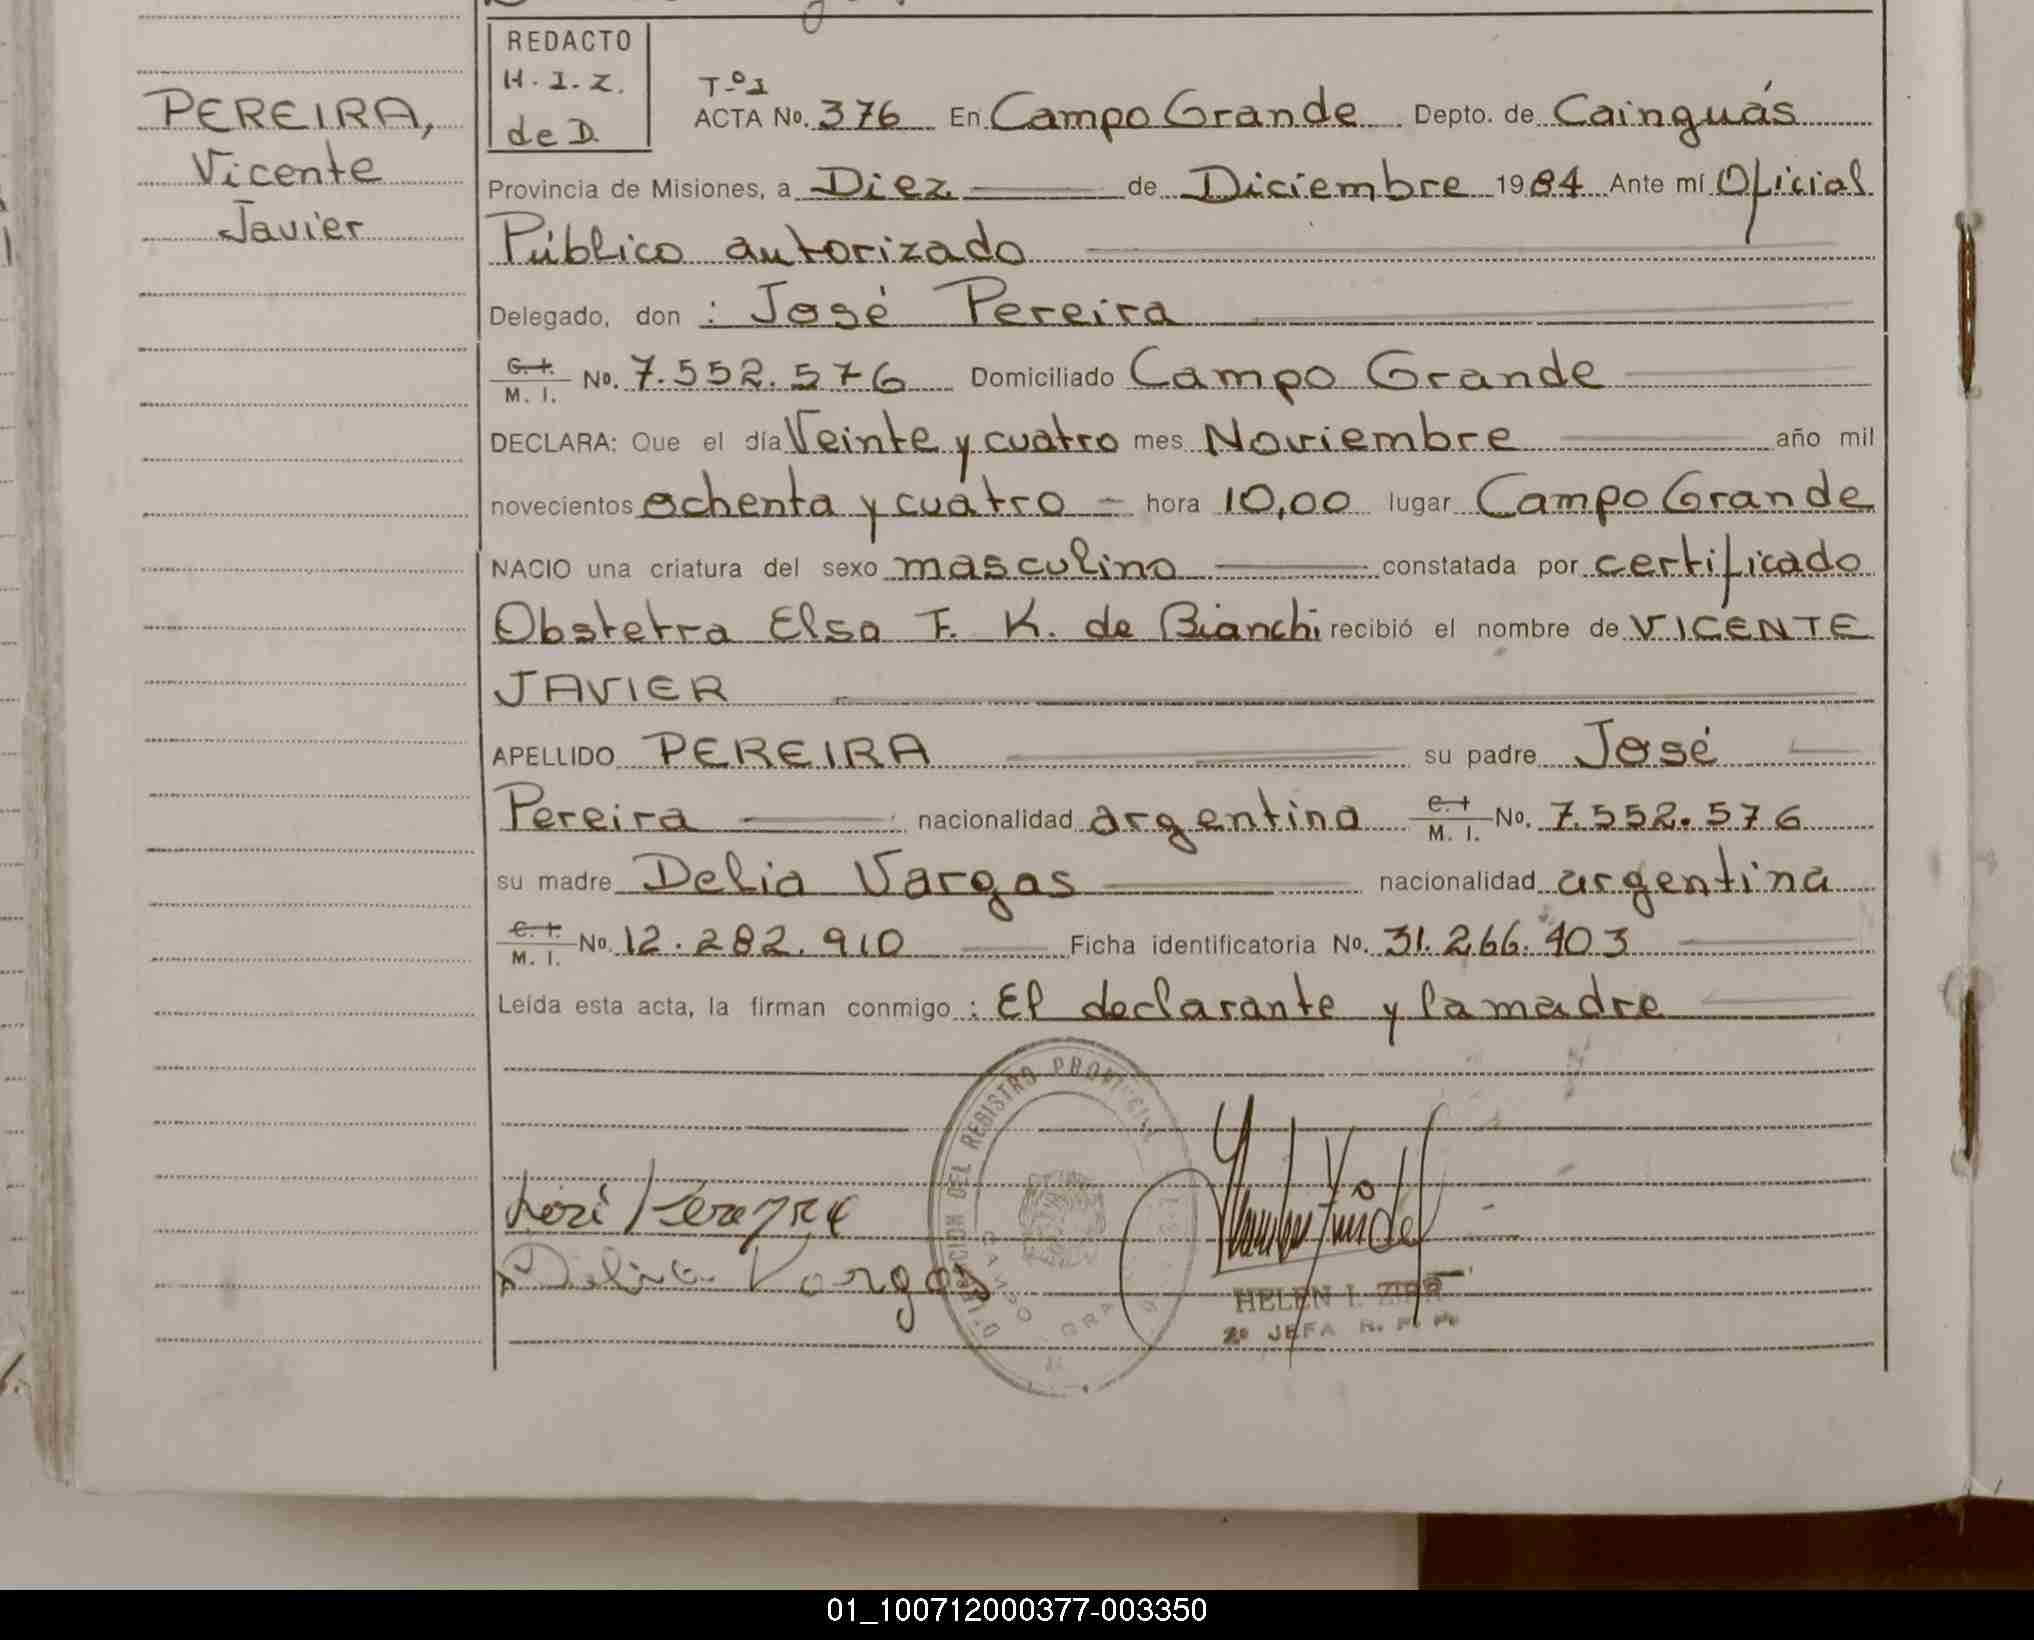 PEREIRA,
Vicente
Javier
REDACTO
H.I.Z.
de D.
Tº1
ACTA No. 376 En Campo Grande Depto. de Cainguás
Provincia de Misiones, a Diez de Diciembre 1984 Ante mí Oficial
Público autorizado
Delegado, don : José Pereira
M. I. No. 7.552.576 Domiciliado Campo Grande
DECLARA: Que el día Veinte y cuatro mes Noviembre año mil
novecientos ochenta y cuatro = hora 10,00 lugar Campo Grande
NACIO una criatura del sexo masculino constatada por certificado
Obstetra Elsa F. K. de Bianchi recibió el nombre de VICENTE
JAVIER
APELLIDO PEREIRA su padre José
Pereira nacionalidad argentina M. I. No. 7.552.576
su madre Delia Vargas nacionalidad argentina
M. I. No. 12.282.910 Ficha identificatoria No. 31.266.403
Leída esta acta, la firman conmigo : El declarante y la madre
DIRECCION DEL REGISTRO PROVINCIAL
CAMPO GRA
Delia Vargas
HELEN I.
2º JEFA R. P. P.
01_100712000377-003350